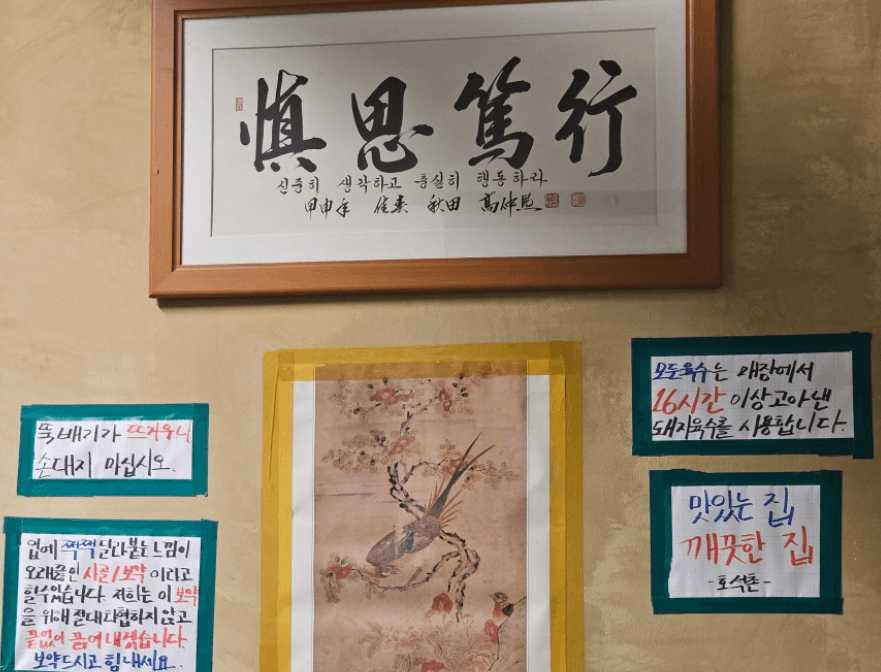 愼思篤行
신중히 생각하고 충실히 행동하라
甲申年 佳春 秋田
뚝배기가 뜨거우니
손대지 마십시오.
입에 쩍쩍 달라붙는 느낌이
오래끓인 사골/보약 이라고
할수있습니다. 저희는 이 보약
을 위해 절대 타협하지 않고
끝없이 끓여 내렸습니다.
보약드시고 힘내세요.
모든육수는 매장에서
16시간 이상고아낸
돼지육수를 사용합니다.
맛있는 집
깨끗한 집
-호석촌-